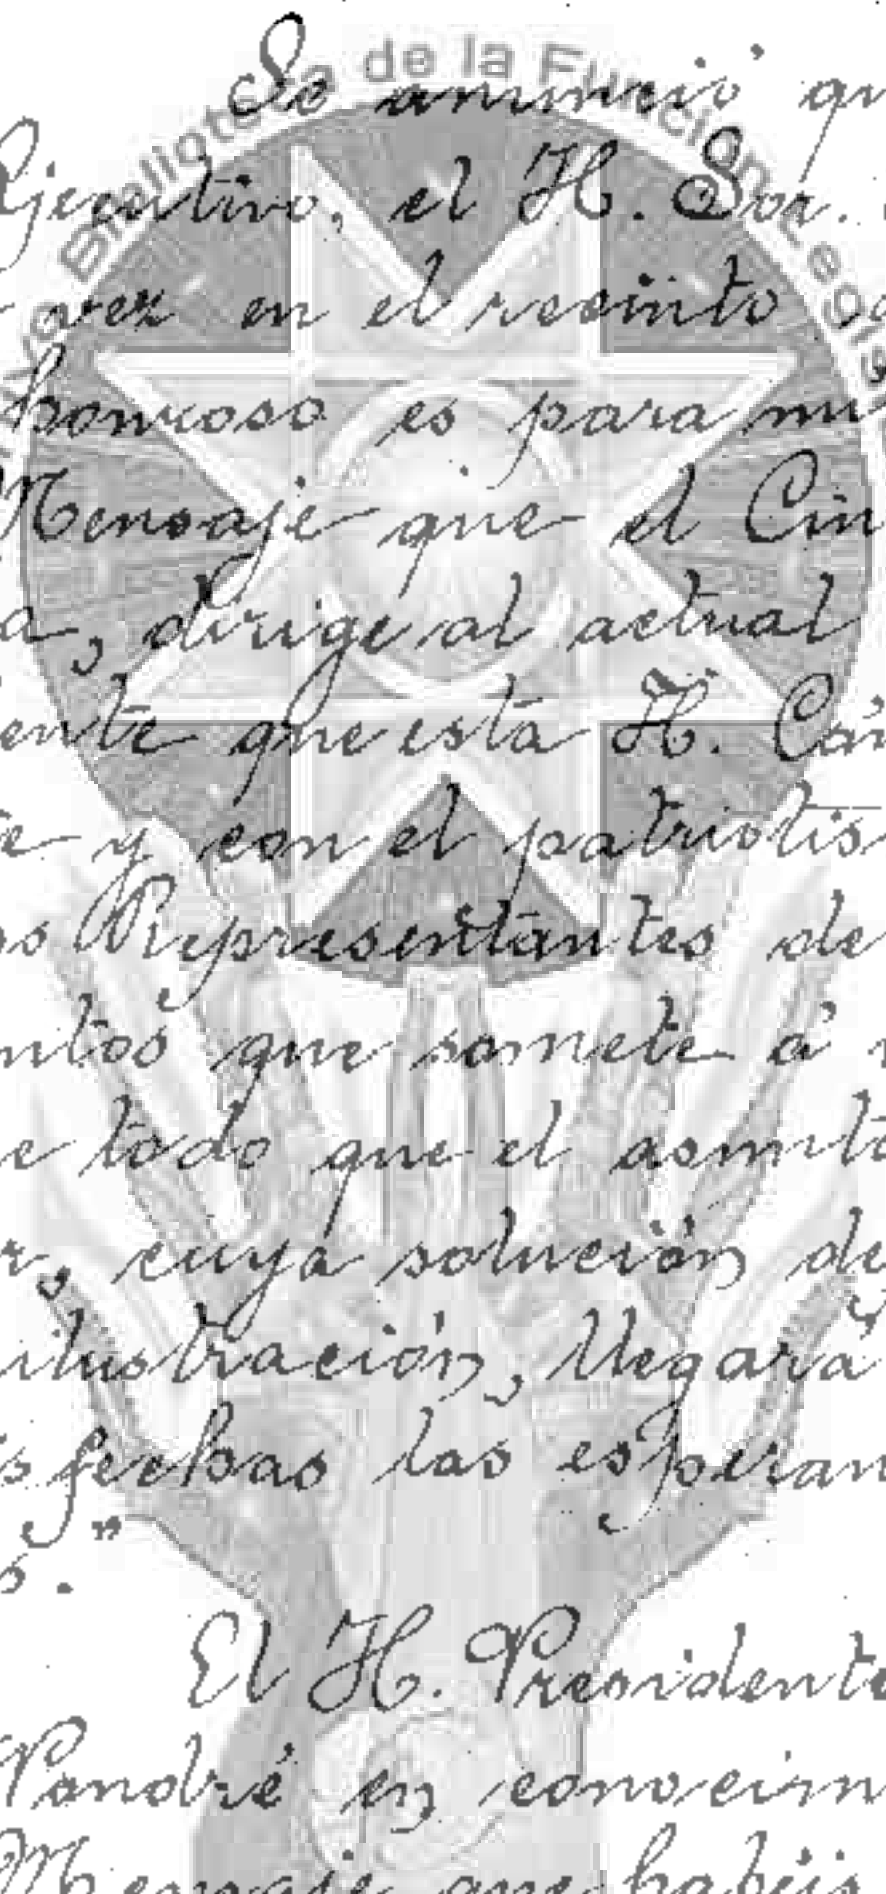 de la Función Legis
Se anunció qu
Ejecutivo, el H. Sor.
vez en el recinto
honroso es para mi
Mensaje que el Ciu
a, dirige al actual
ente que esta H. Cám
e y con el patriotis
os Representantes de
ntos que somete á
e todo que el asunto
r, cuya solución de
ilustración, llegará
s fechas las esperan
s."
El H. Presidente
Pondré en conocim
Mensaje que habéis